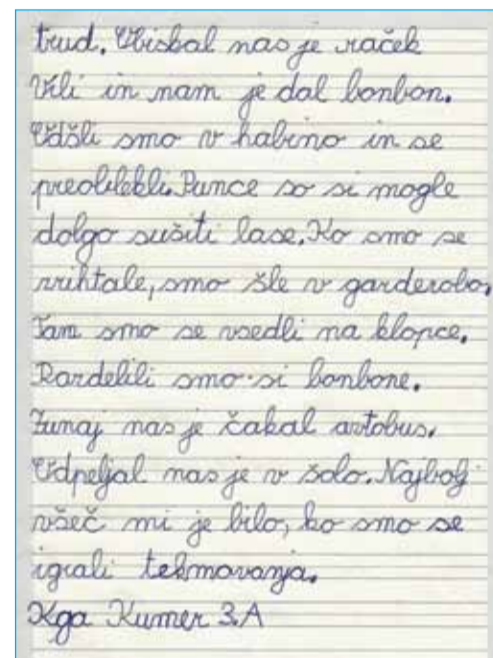 trud. Obiskal nas je raček
Vili in nam je dal bonbon.
Odšli smo v kabino in se
preoblekli. Punce so si mogle
dolgo sušiti lase. Ko smo se
zrihtale, smo šle v garderobo.
Tam smo se vsedli na klopce.
Razdelili smo si bonbone.
Zunaj nas je čakal avtobus.
Odpeljal nas je v šolo. Najbolj
všeč mi je bilo, ko smo se
igrali tekmovanja.
Kumer 3.A